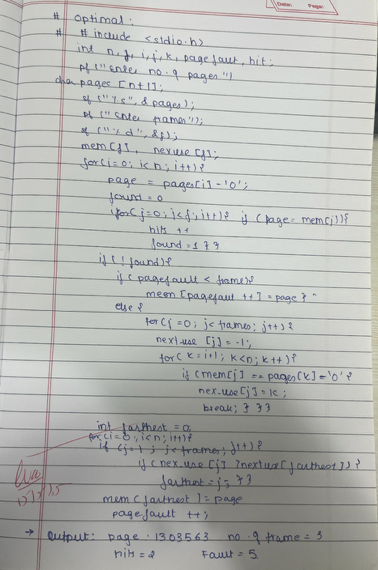 Date: Page:
# optimal:
# # include <stdio.h>
int n, f, i, j, k, pagefault, hit;
pf ("enter no. of pages ")
char pages [n+1];
sf ("%s", & pages);
pf ("Enter frames");
sf ("%d", &f);
mem [f], nexuse [f];
for(i=0; i<n; i++){
page = pages[i] - '0';
found = 0
for(j=0; j<f; j++){ if (page= mem[i]){
hits ++
found = 1 } }
if (! found){
if (pagefault < frame){
mem [pagefaut ++] = page }
else {
for(j=0; j<frames; j++){
next.use [j] = -1;
for( k=i+1; k<n; k++){
if (mem[j] == pages[k] = '0' {
nex.use [j] = k;
break; } } }
int farthest = 0;
for(i=0; i<n; i++){
if (j=1; j<frames; j++){
if (nex.use [j] >nextuse[farthest]) {
farthest = j; } }
mem [farthest] = page
pagefault ++;
→ Output: page · 1303563 no. of frame = 3
hits = 2 Fault = 5